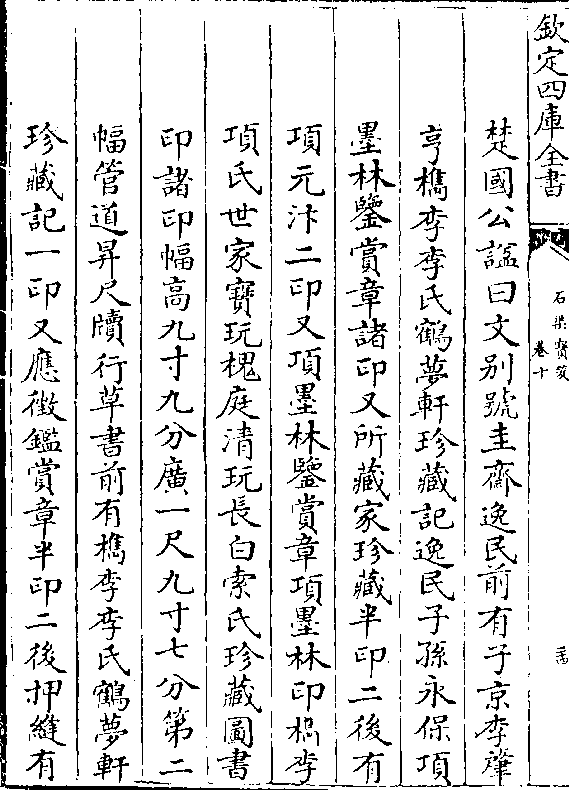 欽定四庫全書
石渠寳笈
卷十
楚國公謚曰文别號圭齋逸民前有子京李肇
亨檇李李氏鶴夢軒珍藏記逸民子孫永保項
墨林鑒賞章諸印又所藏家珍藏半印二後有
項元汴二印又項墨林鑒賞章項墨林印檇李
項氏世家寶玩槐庭清玩長白索氏珍藏圖書
印諸印幅高九寸九分廣一尺九寸七分第二
幅管道昇尺牘行草書前有檇李李氏鶴夢軒
珍藏記一印又應徴鑑賞章半印二後押縫有